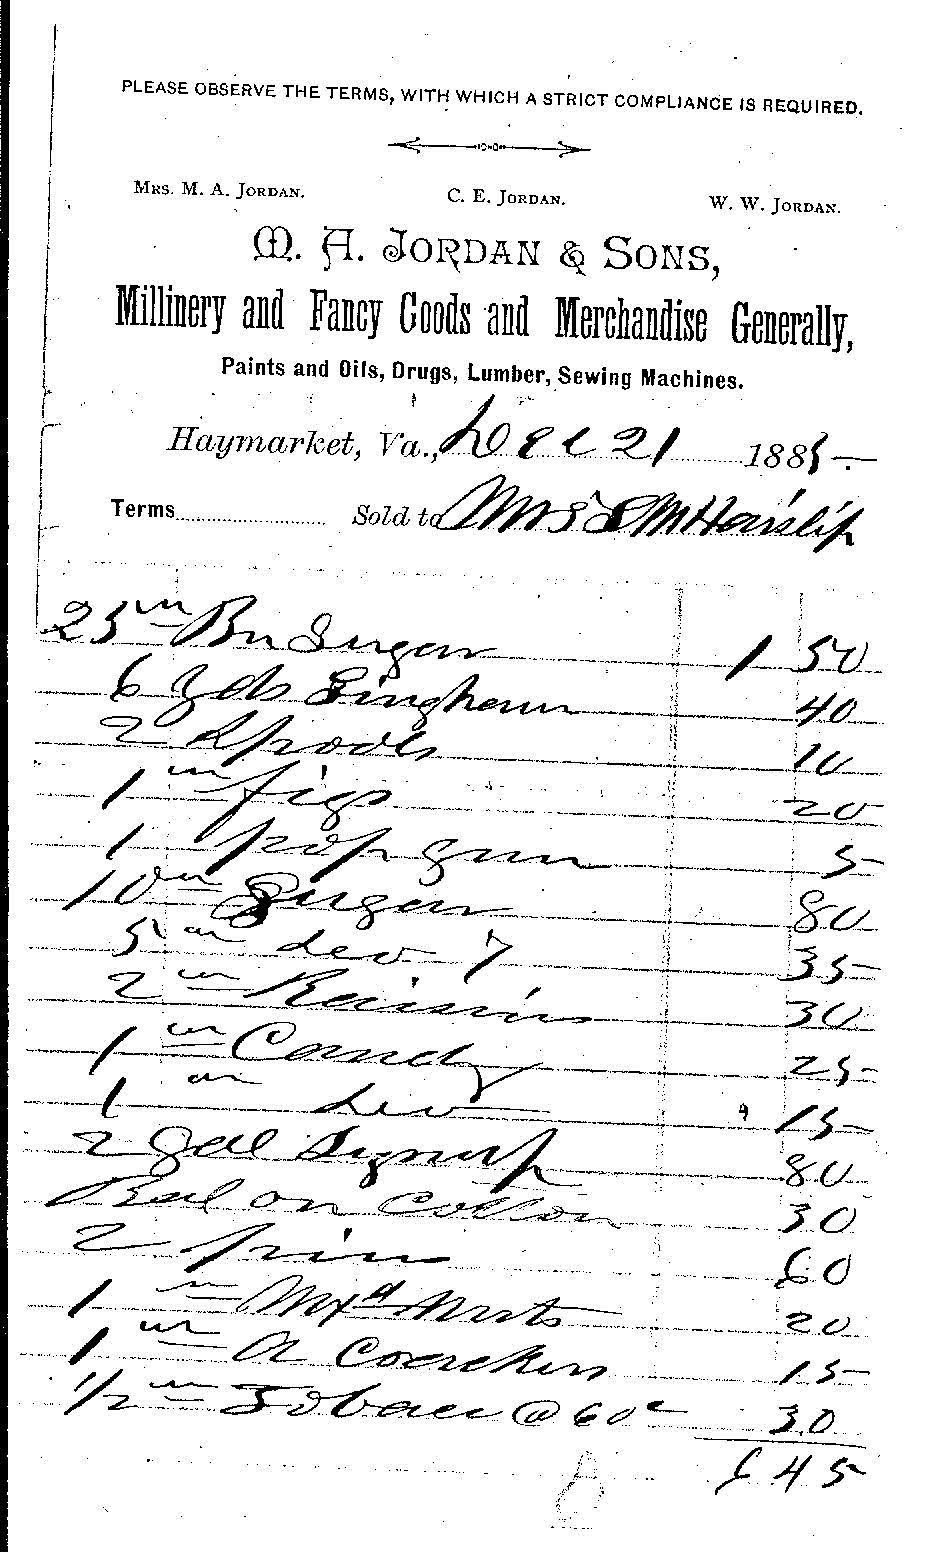 PLEASE OBSERVE THE TERMS, WITH WHICH A STRICT COMPLIANCE IS REQUIRED.
MRS. M. A. JORDAN. C. E. JORDAN. W. W. JORDAN.
M. A. JORDAN & SONS,
Millinery and Fancy Goods and Merchandise Generally,
Paints and Oils, Drugs, Lumber, Sewing Machines.
Haymarket, Va., Dec 21 1885
Terms Sold to Mrs
25 Bn Sugar 1 50
6 yds Gingham 40
2 Spools 10
1 figs 20
1 pop gun 5
10 Sugar 80
5 7 35
2 Raisins 30
1 Candy 25
1 15
2 Gall 80
Bal on Cotton 30
2 60
1 Mxd Nuts 20
1 a Crackers 15
1/2 Tobacc @ 60c 30
6 45